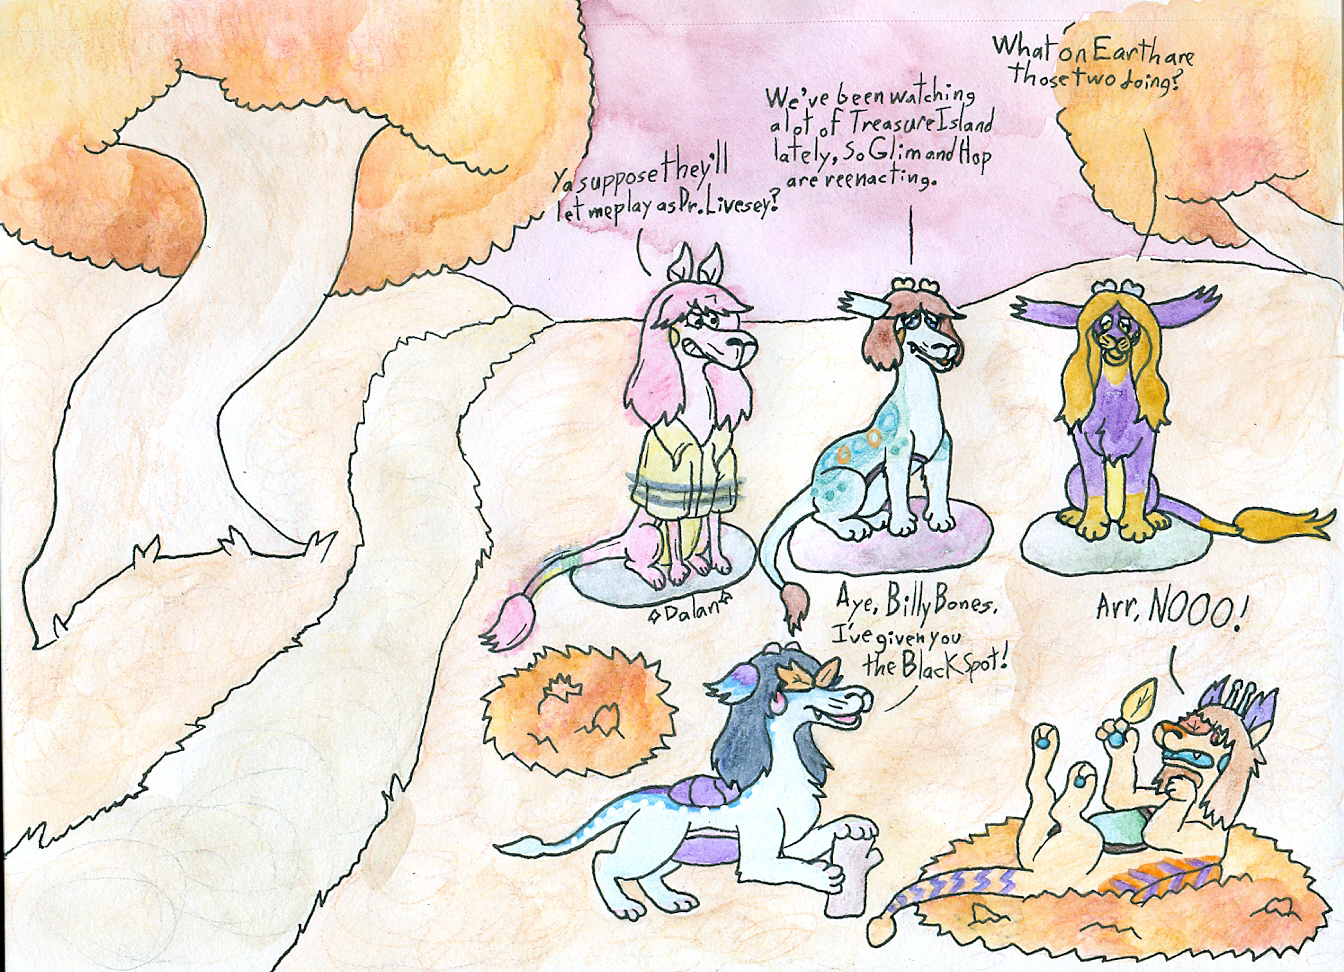 What on Earth are
those two doing?
We've been watching
a lot of Treasure Island
lately, So Glim and Hop
are reenacting.
Ya suppose they'll
let me play as Dr. Livesey?
Dalan
Aye, Billy Bones,
I've given you
the Black Spot!
Arr, NOOO!